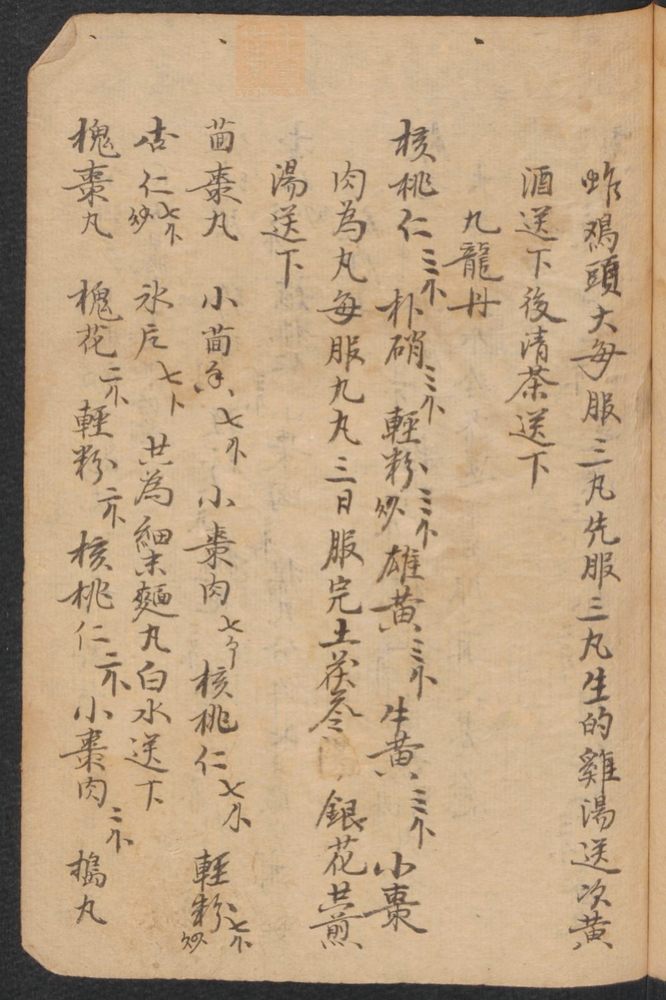 鷄頭大每服三丸先服三丸生的雞湯送次黄
酒送下後清茶送下
九龍丹
核桃仁三个 朴硝三个 輕粉炒三个 雄黄三个 牛黄三个 小棗
肉為丸每服九丸三日服完土茯苓 銀花共煎
湯送下
茴棗丸 小茴香七个 小棗肉七个 核桃仁七个 輕粉炒七个
杏仁炒七个 氷片七个 共為細末麵丸白水送下
槐棗丸 槐花二个 輕粉二个 核桃仁二个 小棗肉二个 搗丸